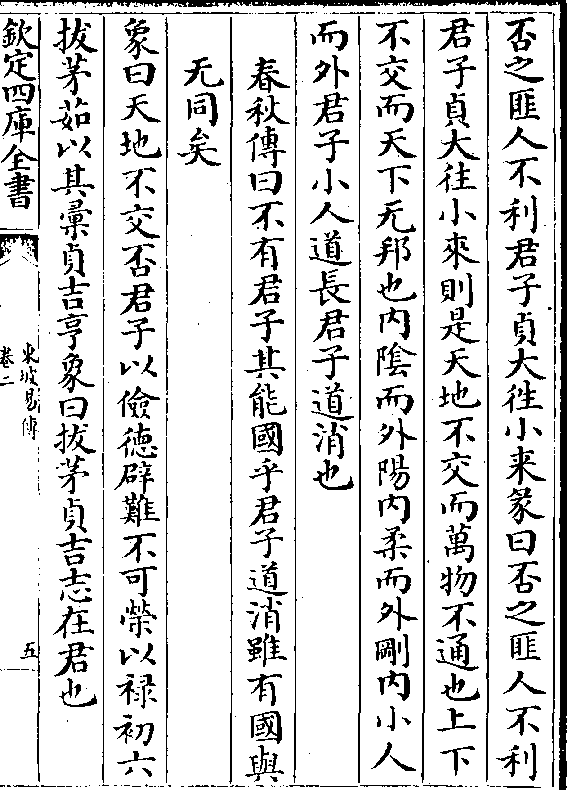 否之匪人不利君子貞大徃小来彖曰否之匪人不利
君子貞大往小來則是天地不交而萬物不通也上下
不交而天下无邦也内陰而外陽内柔而外剛内小人
而外君子小人道長君子道消也
春秋傳曰不有君子其能國乎君子道消雖有國與
无同矣
象曰天地不交否君子以儉德辟難不可榮以禄初六
拔茅茹以其彚貞吉亨象曰拔茅貞吉志在君也
欽定四庫全書
東坡易傳
卷二
五